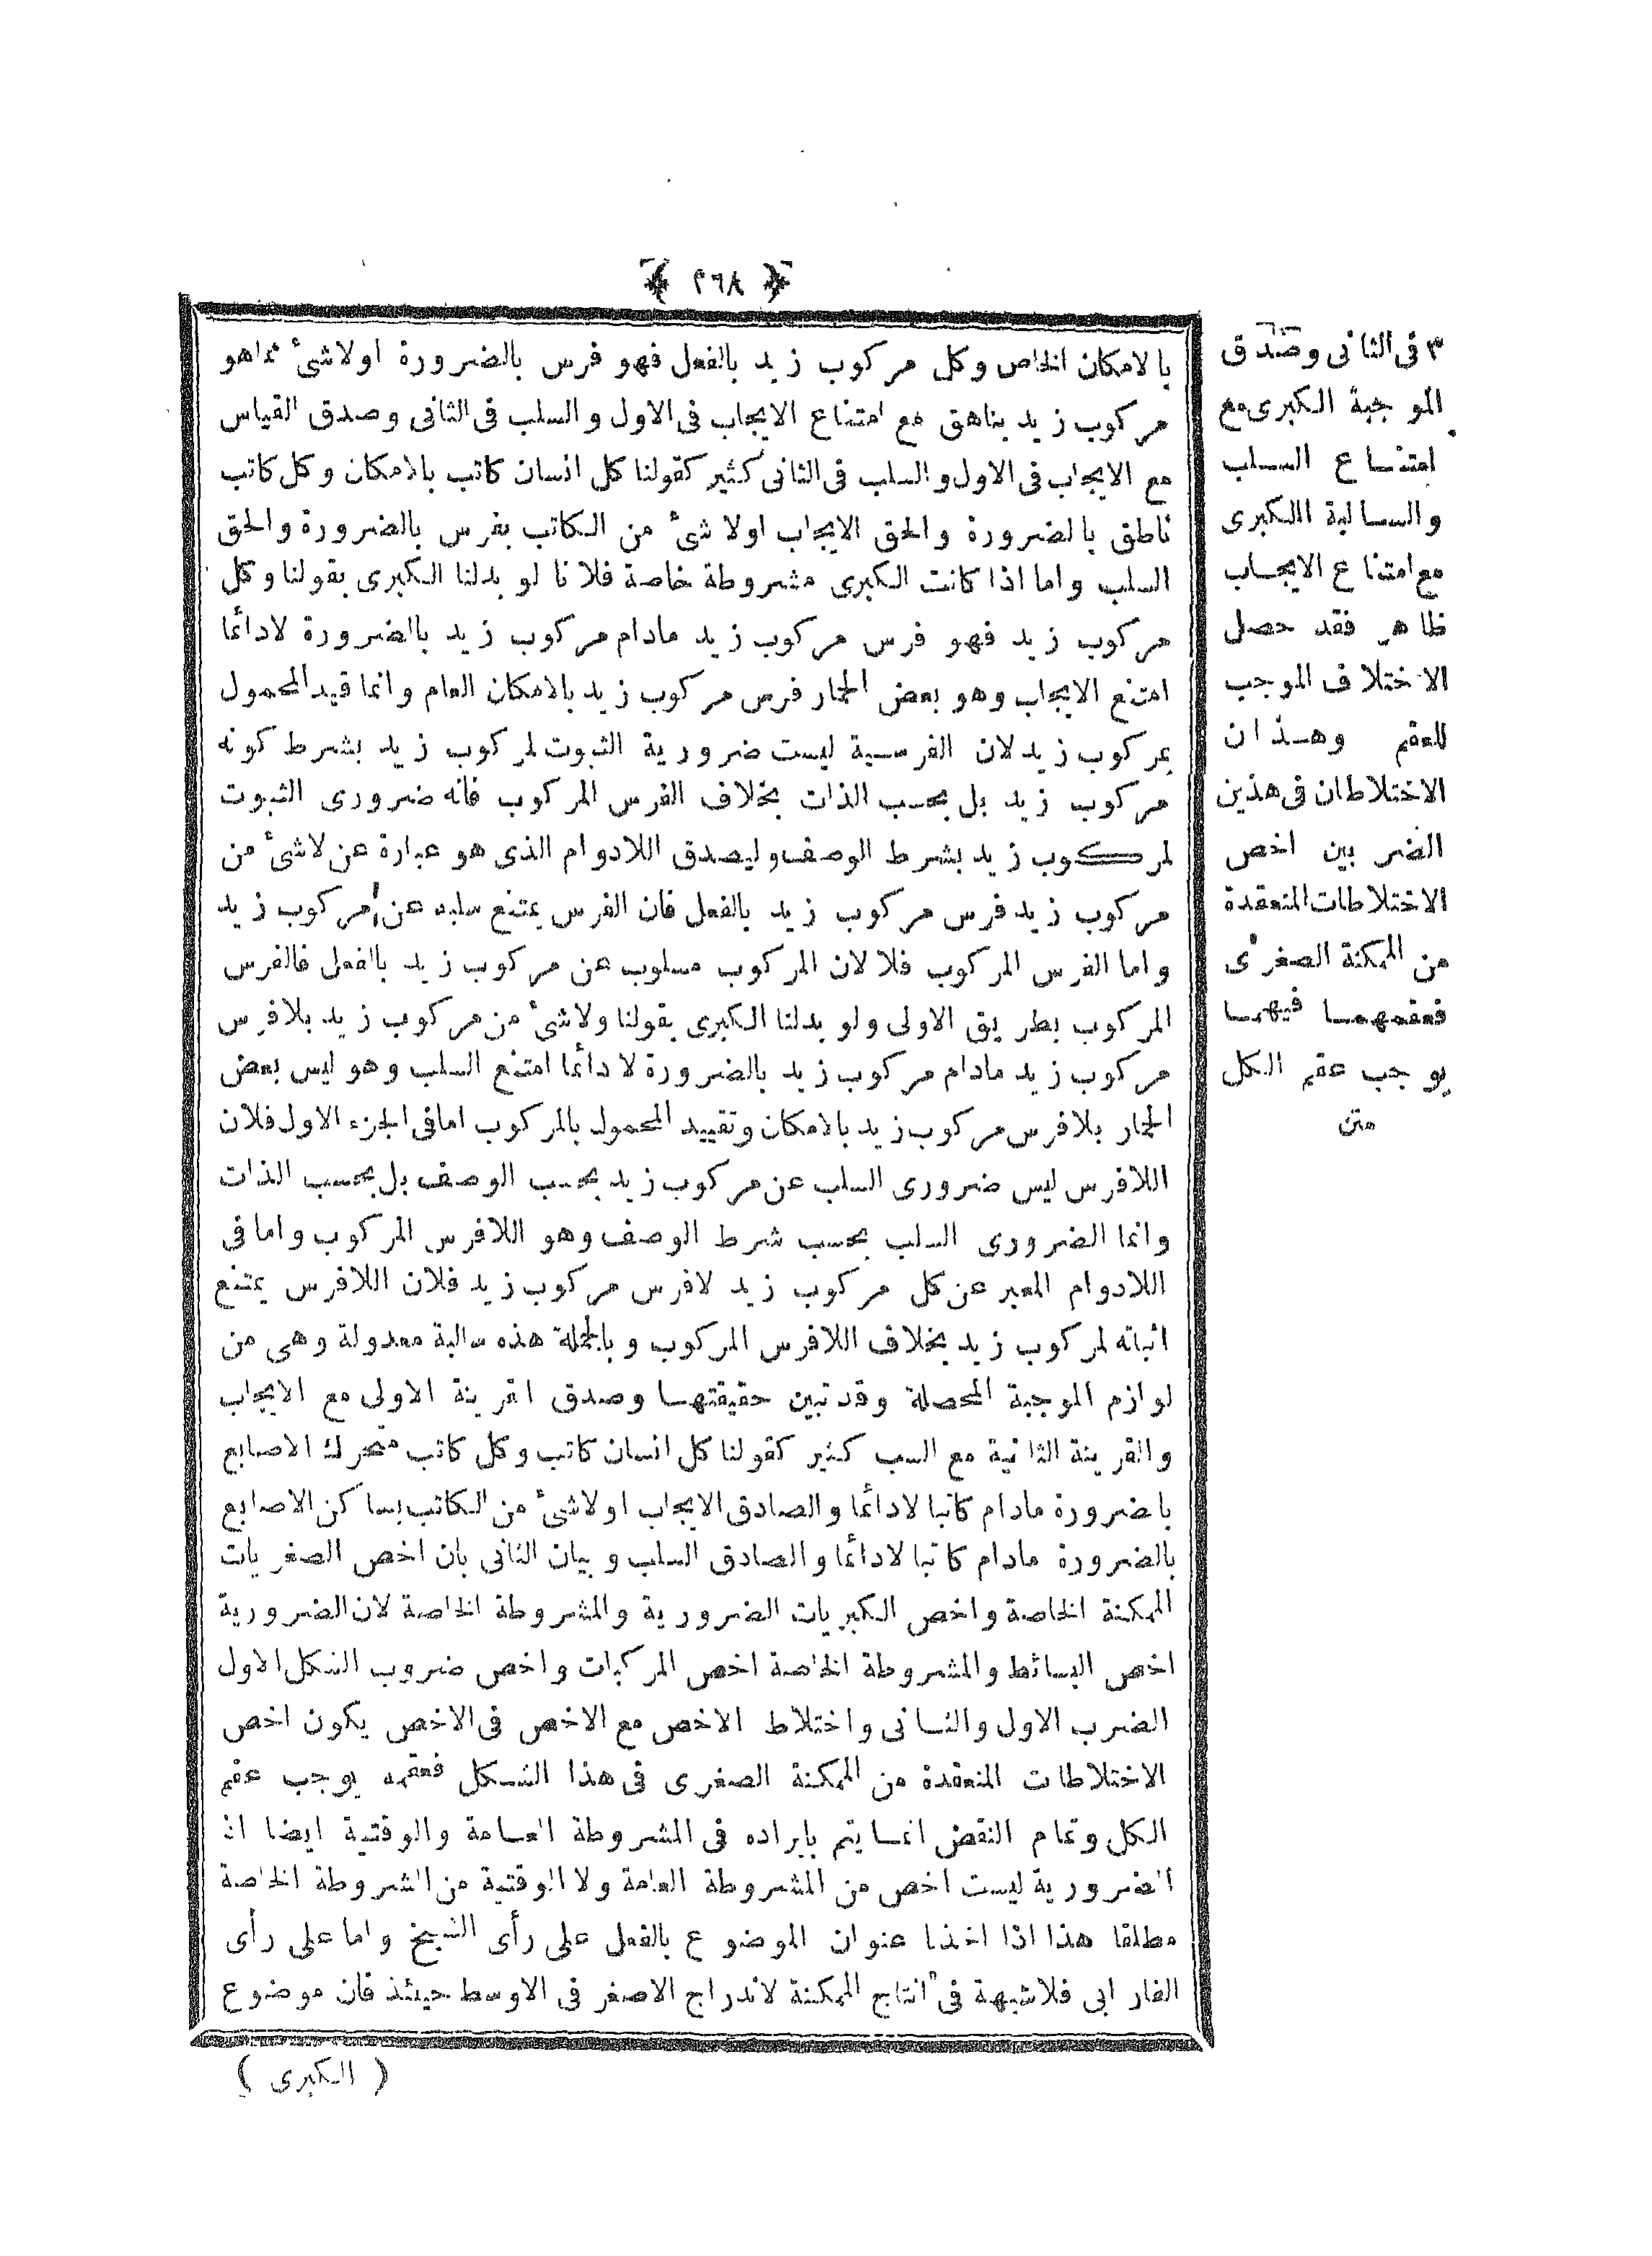 ﴿ ٢٦٨ ﴾
بالامكان الخاص وكل مركوب زيد بالفعل فهو فرس بالضرورة اولاشئ مماهو
مركوب زيد بناهق مع امتناع الايجاب فى الاول والسلب فى الثانى وصدق القياس
مع الايجاب فى الاول والسلب فى الثانى كثير كقولنا كل انسان كاتب بالامكان وكل كاتب
ناطق بالضرورة والحق الايجاب اولا شئ من الكاتب بفرس بالضرورة والحق
السلب واما اذا كانت الكبرى مشروطة خاصة فلانا لو بدلنا الكبرى بقولنا وكل
مركوب زيد فهو فرس مركوب زيد مادام مركوب زيد بالضرورة لادائما
امتنع الايجاب وهو بعض الحمار فرس مركوب زيد بالامكان العام وانما قيد المحمول
بمركوب زيد لان الفرسية ليست ضرورية الثبوت لمركوب زيد بشرط كونه
مركوب زيد بل بحسب الذات بخلاف الفرس المركوب فانه ضرورى الثبوت
لمركوب زيد بشرط الوصف وليصدق اللادوام الذى هو عبارة عن لاشئ من
مركوب زيد فرس مركوب زيد بالفعل فان الفرس يمتنع سلبه عن مركوب زيد
واما الفرس المركوب فلا لان المركوب مسلوب عن مركوب زيد بالفعل فالفرس
المركوب بطريق الاولى ولو بدلنا الكبرى بقولنا ولاشئ من مركوب زيد بلافرس
مركوب زيد مادام مركوب زيد بالضرورة لا دائما امتنع السلب وهو ليس بعض
الحمار بلافرس مركوب زيد بالامكان وتقييد المحمول بالمركوب امافى الجزء الاول فلان
اللافرس ليس ضرورى السلب عن مركوب زيد بحسب الوصف بل بحسب الذات
وانما الضرورى السلب بحسب شرط الوصف وهو اللافرس المركوب واما فى
اللادوام المعبر عن كل مركوب زيد لافرس مركوب زيد فلان اللافرس يمتنع
اثباته لمركوب زيد بخلاف اللافرس المركوب وبالجملة هذه سالبة معدولة وهى من
لوازم الموجبة المحصلة وقد تبين حقيقتهما وصدق القرينة الاولى مع الايجاب
والقرينة الثانية مع السب كثير كقولنا كل انسان كاتب وكل كاتب متحرك الاصابع
باضرورة مادام كاتبا لادائما والصادق الايجاب اولاشئ من الكاتب بساكن الاصابع
بالضرورة مادام كاتبا لادائما والصادق السلب وبيان الثانى بان اخص الصغريات
الممكنة الخاصة واخص الكبريات الضرورية والمشروطة الخاصة لان الضرورية
اخص البسائط والمشروطة الخاصة اخص المركبات واخص ضروب الشكل الاول
الضرب الاول والثانى واختلاط الاخص مع الاخص فى الاخص يكون اخص
الاختلاطات المنعقدة من الممكنة الصغرى فى هذا الشكل فعقمه يوجب عقم
الكل وتمام النقض انما يتم بايراده فى المشروطة العامة والوقتية ايضا اذ
الضرورية ليست اخص من المشروطة العامة ولا الوقتية من المشروطة الخاصة
مطلقا هذا اذا اخذنا عنوان الموضوع بالفعل على رأى الشيخ واما على رأى
الفارابى فلاشبهة فى انتاج الممكنة لاندراج الاصغر فى الاوسط حينئذ فان موضوع
( الكبرى )
٣ فى الثانى وصدق
الموجبة الكبرى مع
امتناع السلب
والسالبة الكبرى
مع امتناع الايجاب
ظاهر فقد حصل
الاختلاف الموجب
للعقم وهذان
الاختلاطان فى هذين
الضربين اخص
الاختلاطات المنعقدة
من الممكنة الصغرى
فعقمهما فيهما
يوجب عقم الكل
متن